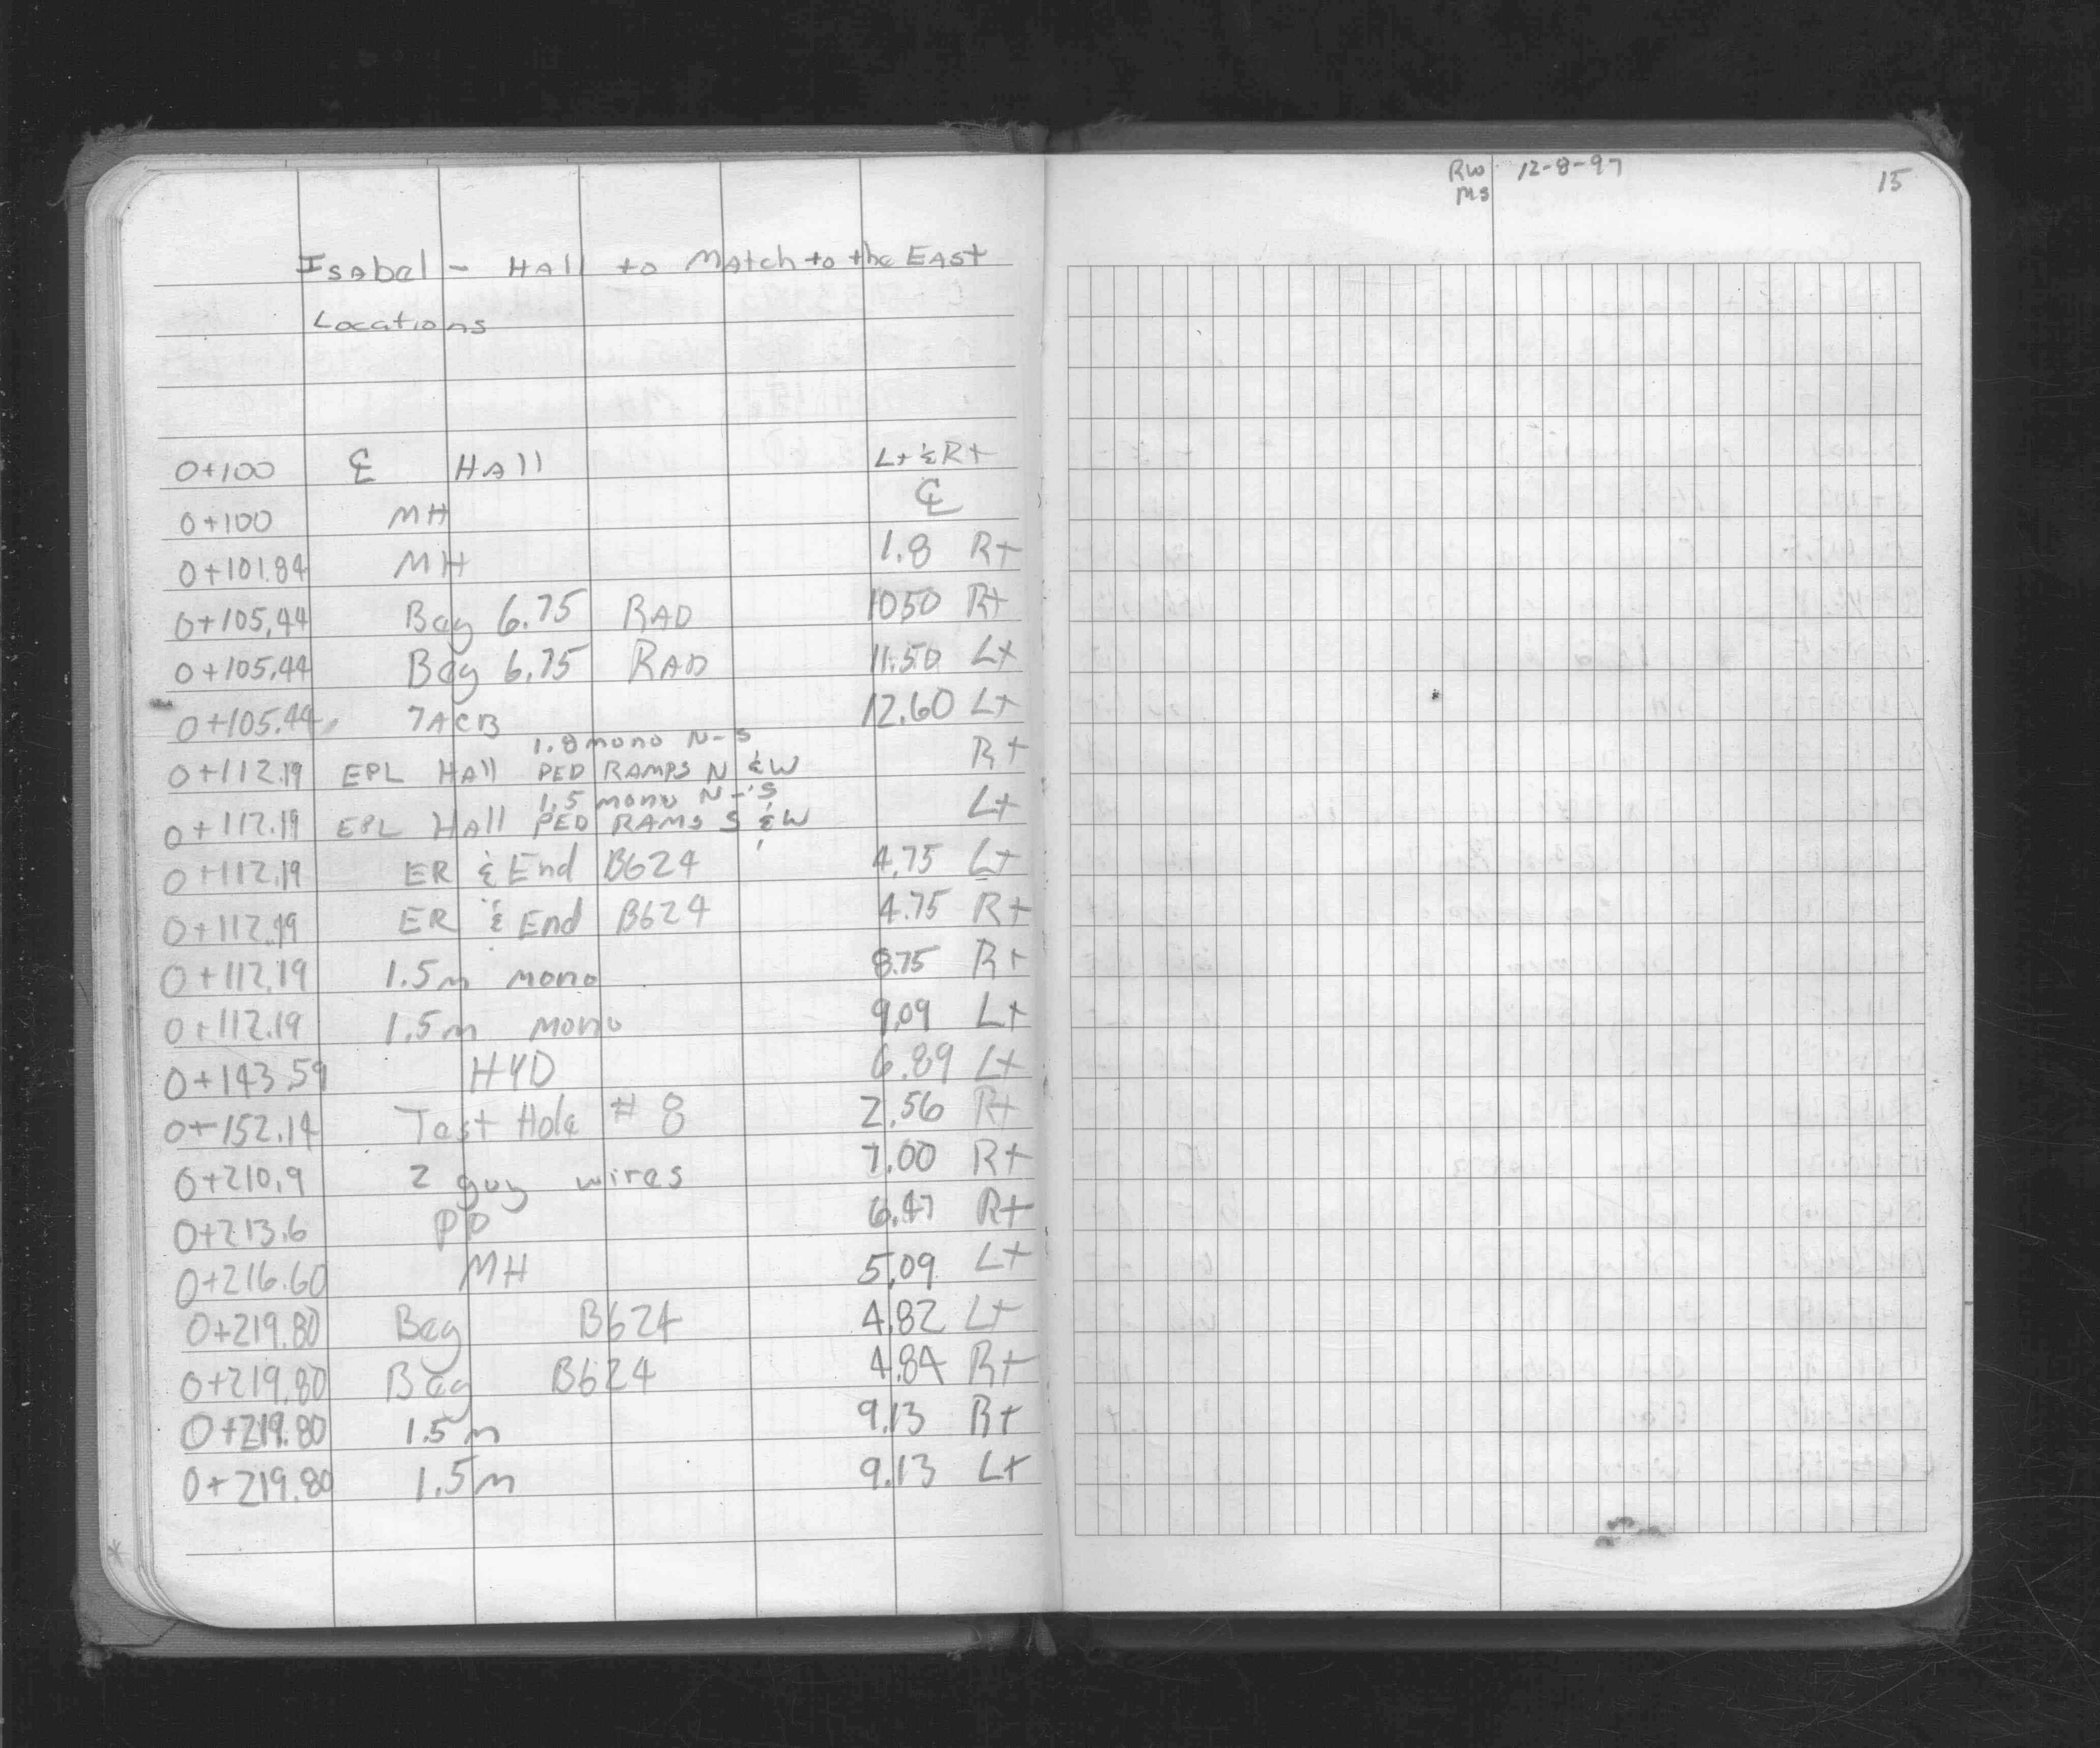 Isabel - Hall to Match to the East
Locations
0+100 ℄ Hall Lt & Rt
0+100 MH ℄
0+101.84 MH 1.8 Rt
0+105.44 Beg 6.75 RAD 10.50 Rt
0+105.44 Beg 6.75 RAD 11.50 Lt
0+105.44 7ACB 12.60 Lt
1.8 mono N-S
0+112.19 EPL Hall PED RAMPS N & W Rt
1.5 mono N-S
0+112.19 EPL Hall PED RAMS S & W Lt
0+112.19 ER & End B624 4.75 Lt
0+112.19 ER & End B624 4.75 Rt
0+112.19 1.5m mono 8.75 Rt
0+112.19 1.5m mono 9.09 Lt
0+143.59 HYD 6.89 Lt
0+152.14 Test Hole # 8 2.56 Rt
0+210.9 2 guy wires 7.00 Rt
0+213.6 PP 6.47 Rt
0+216.60 MH 5.09 Lt
0+219.80 Beg B624 4.82 Lt
0+219.80 Beg B624 4.84 Rt
0+219.80 1.5m 9.13 Rt
0+219.80 1.5m 9.13 Lt
RW 12-8-97
MS
15